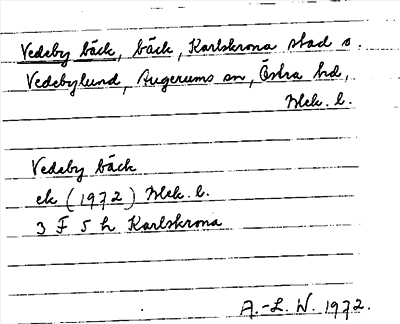 Vedeby bäck, bäck, Karlskrona stad o.
Vedebylund, Augerums sn, Östra hd,
Blek. l.
Vedeby bäck
ek (1972) Blek. l.
3 F 5 h Karlskrona
A.-L. W. 1972.